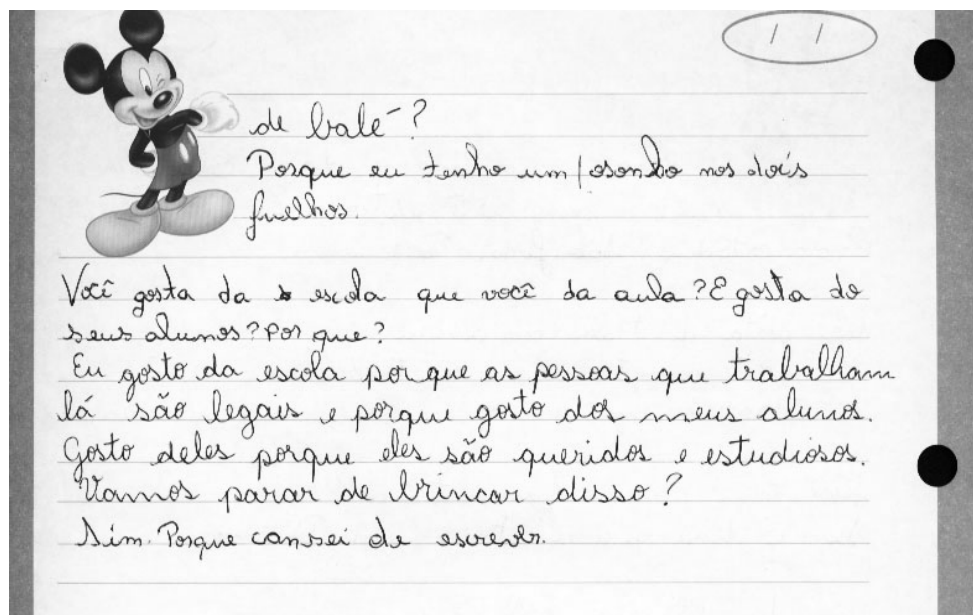 / /
de balé?
Porque eu tenho um osonho nos dois
fuelhos.
Você gosta da escola que você da aula? E gosta do
seus alunos? Por que?
Eu gosto da escola por que as pessoas que trabalham
lá são legais e porque gosto dos meus alunos.
Gosto deles porque eles são queridos e estudiosos.
Vamos parar de brincar disso?
Sim. Porque cansei de escrever.